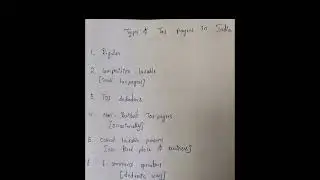 Types of Tax payers in India
1. Regular
2. Competitive taxable
[Small tax payers]
3. Tax deductors
4. Non-Resident Tax payers
[occasionally]
5. Casual taxable persons
place of business]
6. E. commerce operators